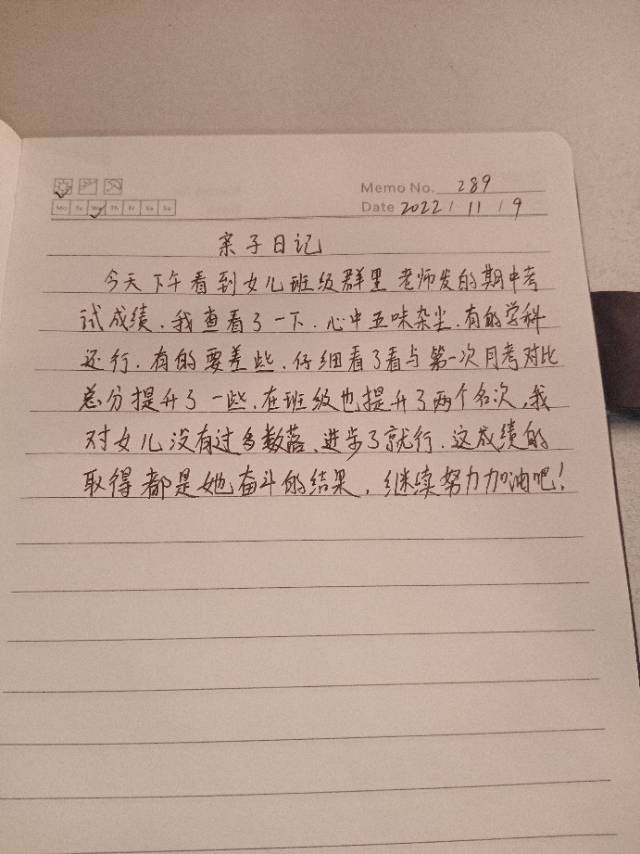 Memo No. 289
Mo Tu We Th Fr Sa Su
Date 2022 / 11 / 9
亲子日记
今天下午看到女儿班级群里老师发的期中考
试成绩.我查看了一下.心中五味杂尘.有的学科
还行.有的要差些.仔细看了看与第一次月考对比
总分提升了一些.在班级也提升了两个名次,我
对女儿没有过多数落.进步了就行.这成绩的
取得都是她奋斗的结果,继续努力加油吧!